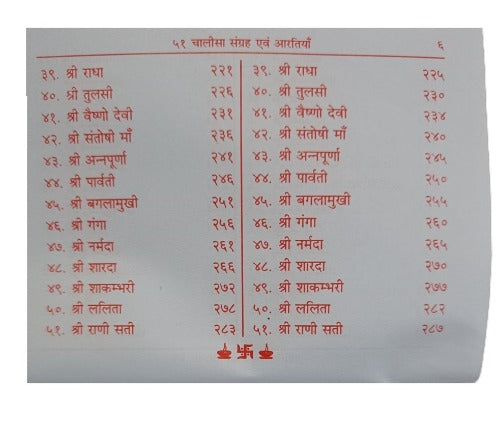 ५१ चालीसा संग्रह एवं आरतियाँ ६
३९. श्री राधा २२१ ३९. श्री राधा २२५
४०. श्री तुलसी २२६ ४०. श्री तुलसी २३०
४१. श्री वैष्णो देवी २३१ ४१. श्री वैष्णो देवी २३४
४२. श्री संतोषी माँ २३६ ४२. श्री संतोषी माँ २४०
४३. श्री अन्नपूर्णा २४१ ४३. श्री अन्नपूर्णा २४५
४४. श्री पार्वती २४६ ४४. श्री पार्वती २५०
४५. श्री बगलामुखी २५१ ४५. श्री बगलामुखी २५५
४६. श्री गंगा २५६ ४६. श्री गंगा २६०
४७. श्री नर्मदा २६१ ४७. श्री नर्मदा २६५
४८. श्री शारदा २६६ ४८. श्री शारदा २७०
४९. श्री शाकम्भरी २७२ ४९. श्री शाकम्भरी २७७
५०. श्री ललिता २७८ ५०. श्री ललिता २८२
५१. श्री राणी सती २८३ ५१. श्री राणी सती २८७